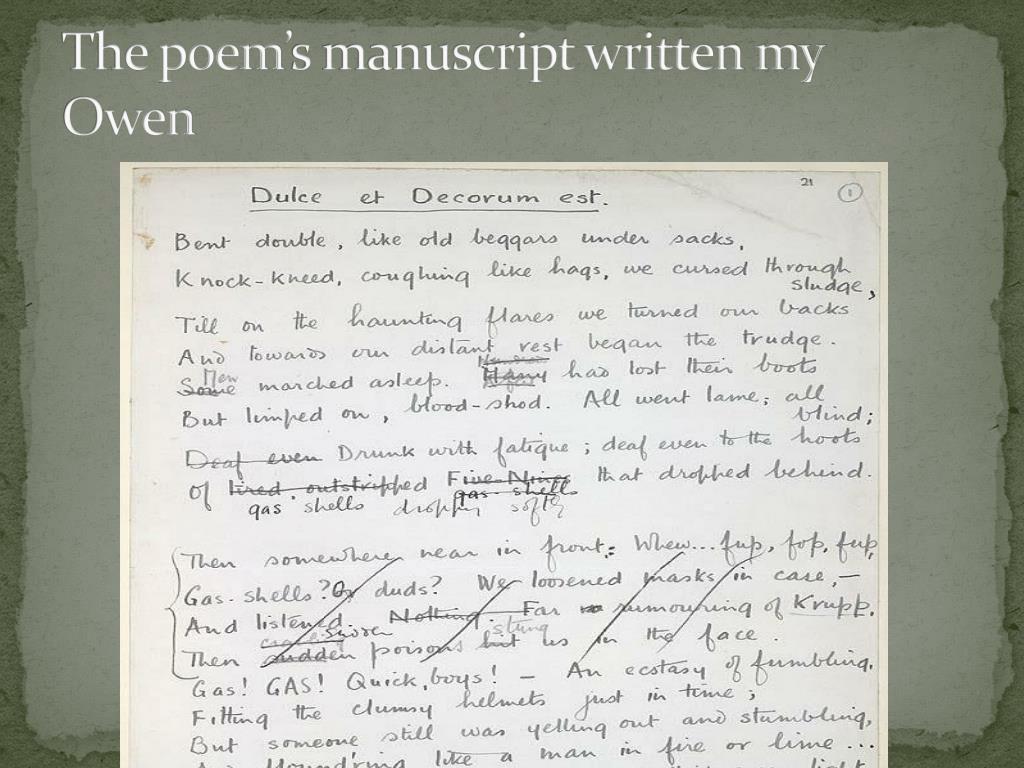 The poem's manuscript written my
Owen
21
1
Dulce et Decorum est.
Bent double, like old beggars under sacks,
Knock-kneed, coughing like hags, we cursed through
sludge,
Till on the haunting flares we turned our backs
And towards our distant rest began the trudge.
Men
Some marched asleep. Many had lost their boots
But limped on, blood-shod. All went lame; all
blind;
Deaf even Drunk with fatigue; deaf even to the hoots
Of tired, outstripped Five-Nines that dropped behind.
gas-shells
gas shells dropping softly
Then somewhere near in front: Whew... fup, fop, fup,
Gas-shells? Or duds? We loosened masks in case,—
And listened. Nothing. Far rumouring of Krupp.
stung
Then sudden poisons hit us in the face.
Gas! GAS! Quick, boys! — An ecstasy of fumbling,
Fitting the clumsy helmets just in time;
But someone still was yelling out and stumbling,
And flound'ring like a man in fire or lime...
light